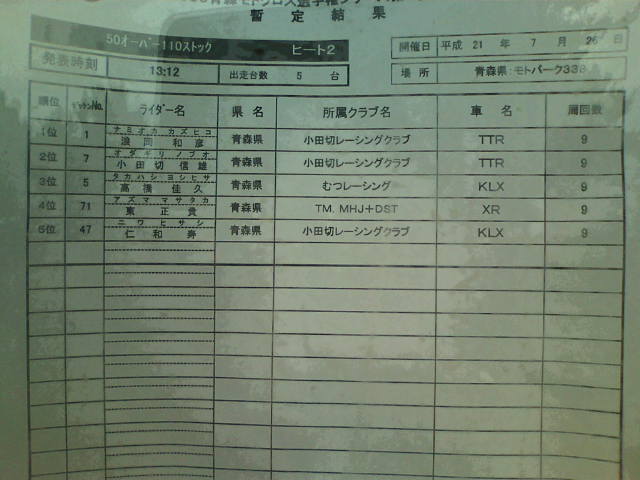 青森モトクロス選手権
暫定結果
50オーバー110ストック ヒート2
開催日 平成 21 年 7 月 26 日
発表時刻 13:12 出走台数 5 台
場所 青森県:モトパーク338
順位 ゼッケンNo. ライダー名 県名 所属クラブ名 車名 周回数
ナミオカ カズヒコ
1位 1 浪岡 和彦 青森県 小田切レーシングクラブ TTR 9
オダギリ ノブオ
2位 7 小田切 信雄 青森県 小田切レーシングクラブ TTR 9
タカハシ ヨシヒサ
3位 5 高橋 佳久 青森県 むつレーシング KLX 9
アズマ マサタカ
4位 71 東 正貴 青森県 TM. MHJ+DST XR 9
ニワ ヒサシ
5位 47 仁和 寿 青森県 小田切レーシングクラブ KLX 9